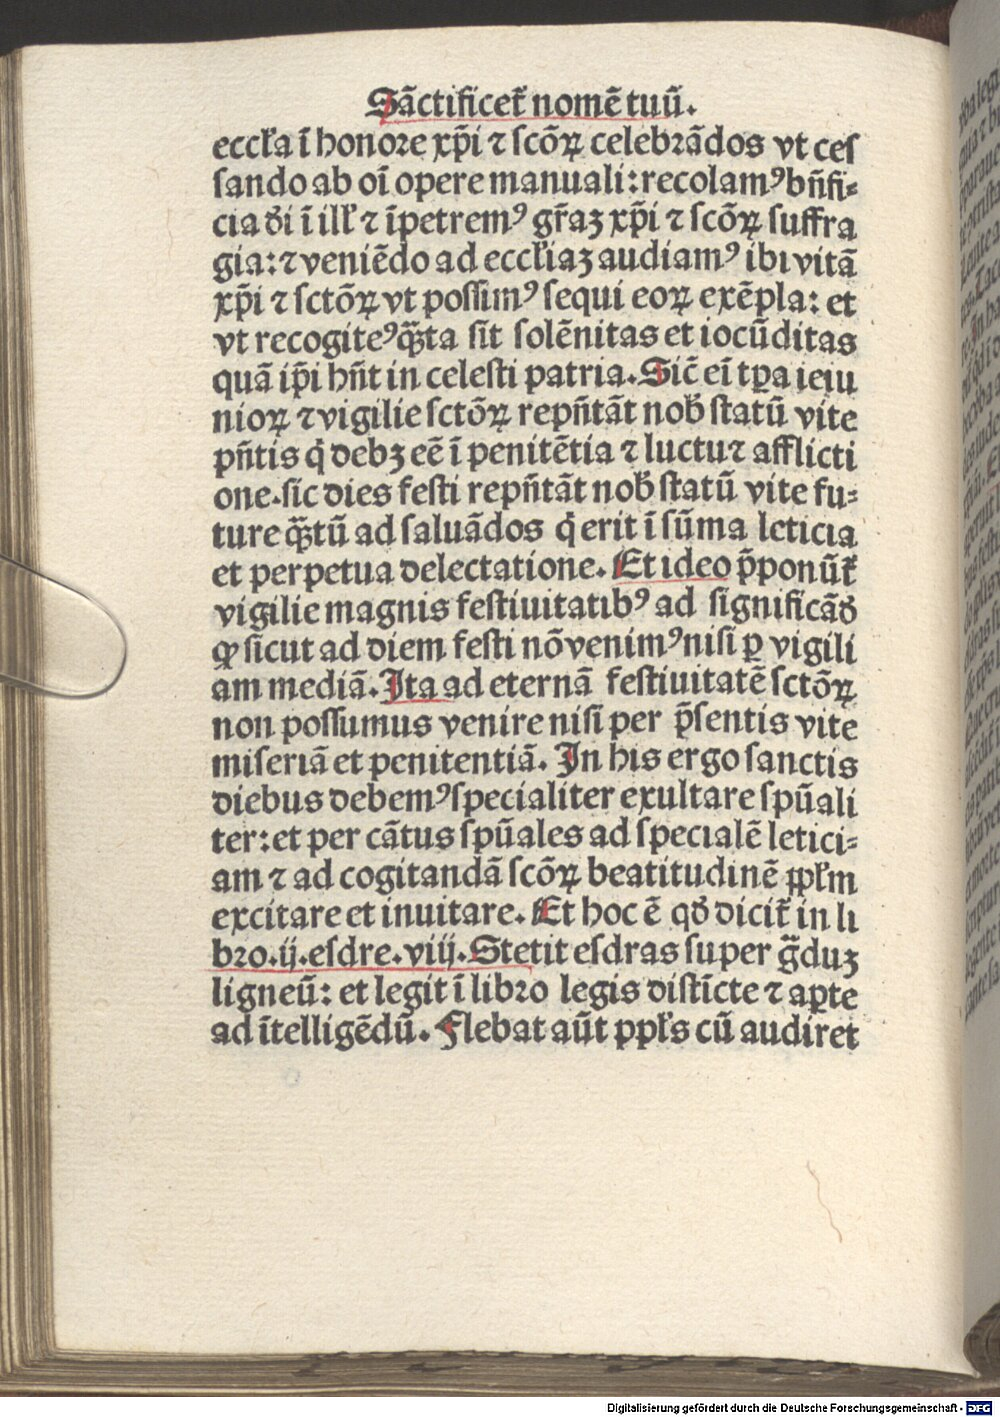 Sāctificet̄ nomē tuū.
eccl̄a ī honore xp̄i ⁊ ſcōꝝ celebrādos vt ceſ
ſando ab oī opere manuali: recolamꝰ bn̄fi⸗
cia d̄i ī ill̄ ⁊ īpetremꝰ gr̄aꝫ xp̄i ⁊ ſcōꝝ ſuffra
gia: ⁊ veniēdo ad eccl̄iaꝫ audiamꝰ ibi vitā
xp̄i ⁊ ſctōꝝ vt poſſimꝰ ſequi eoꝝ exēpla: et
vt recogitetꝰ q̄ꝫta ſit ſolēnitas et iocūditas
quā ip̄i hn̄t in celeſti patria. Sic̄ eī tꝑa ieiu
nioꝝ ⁊ vigilie ſctōꝝ repn̄tāt nob̄ ſtatū vite
pn̄tis q̇ debꝫ eē ī penitētia ⁊ luctu ⁊ afflicti
one. ſic dies feſti repn̄tāt nob̄ ſtatū vite fu⸗
ture q̄ꝫtū ad ſaluādos q̇ erit ī ſūma leticia
et perpetua delectatione. Et ideo p̄ponūt̄
vigilie magnis feſtiuitatibꝰ ad ſignificād̄
ꝙ ſicut ad diem feſti nō venimꝰ niſi ꝑ vigili
am mediā. Ita ad eternā feſtiuitatē ſctōꝝ
non poſſumus venire niſi per p̄ſentis vite
miſeriā et penitentiā. In his ergo ſanctis
diebus debemꝰ ſpecialiter exultare ſpūali
ter: et per cātus ſpūales ad ſpecialē letici⸗
am ⁊ ad cogitandā ſcōꝝ beatitudinē ꝓpl̄m
excitare et inuitare. Et hoc ē qd̄ dicit̄ in li
bro. ij. eſdre. viij. Stetit eſdras ſuper ḡduꝫ
ligneū: et legit ī libro legis diſtīcte ⁊ aꝑte
ad ītelligēdū. Flebat aūt ppl̄s cū audiret
Digitalisierung gefördert durch die Deutsche Forschungsgemeinschaft - DFG